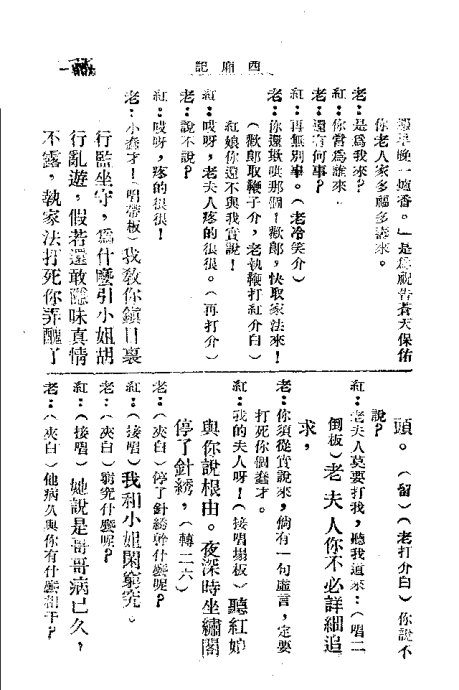 西廂記
還早晚一爐香。」是爲祝告蒼天保佑
你老人家多福多壽來。
老：是爲我來？
紅：你當爲誰來。
老：還有何事？
紅：再無別事。（老冷笑介）
老：你還欺哄那個！歡郎，快取家法來！
（歡郎取鞭子介，老執鞭打紅介白）
紅娘你還不與我實說！
紅：哎呀，老夫人疼的很很。（再打介）
老：說不說？
紅：哎呀，疼的很很！
老：小蠢才！（唱帶板）我敎你鎮日裏
行監坐守，爲什麼引小姐胡
行亂遊，假若還敢隱昧真情
不露，執家法打死你弄醜丫
頭。（留）（老打介白）你說不
說？
紅：老夫人莫要打我，聽我道來：（唱二
倒板）老夫人你不必詳細追
求，
老：你須從實說來，倘有一句虛言，定要
打死你個蠢才。
紅：我的夫人呀！（接唱塌板）聽紅娘
與你說根由。夜深時坐繡閣
停了針綉，（轉二六）
老：（夾白）停了針綉幹什麼呢？
紅：（接唱）我和小姐閑窮究。
老：（夾白）窮究什麼呢？
紅：（接唱）她說是哥哥病已久，
老：（夾白）他病久與你有什麼相干？